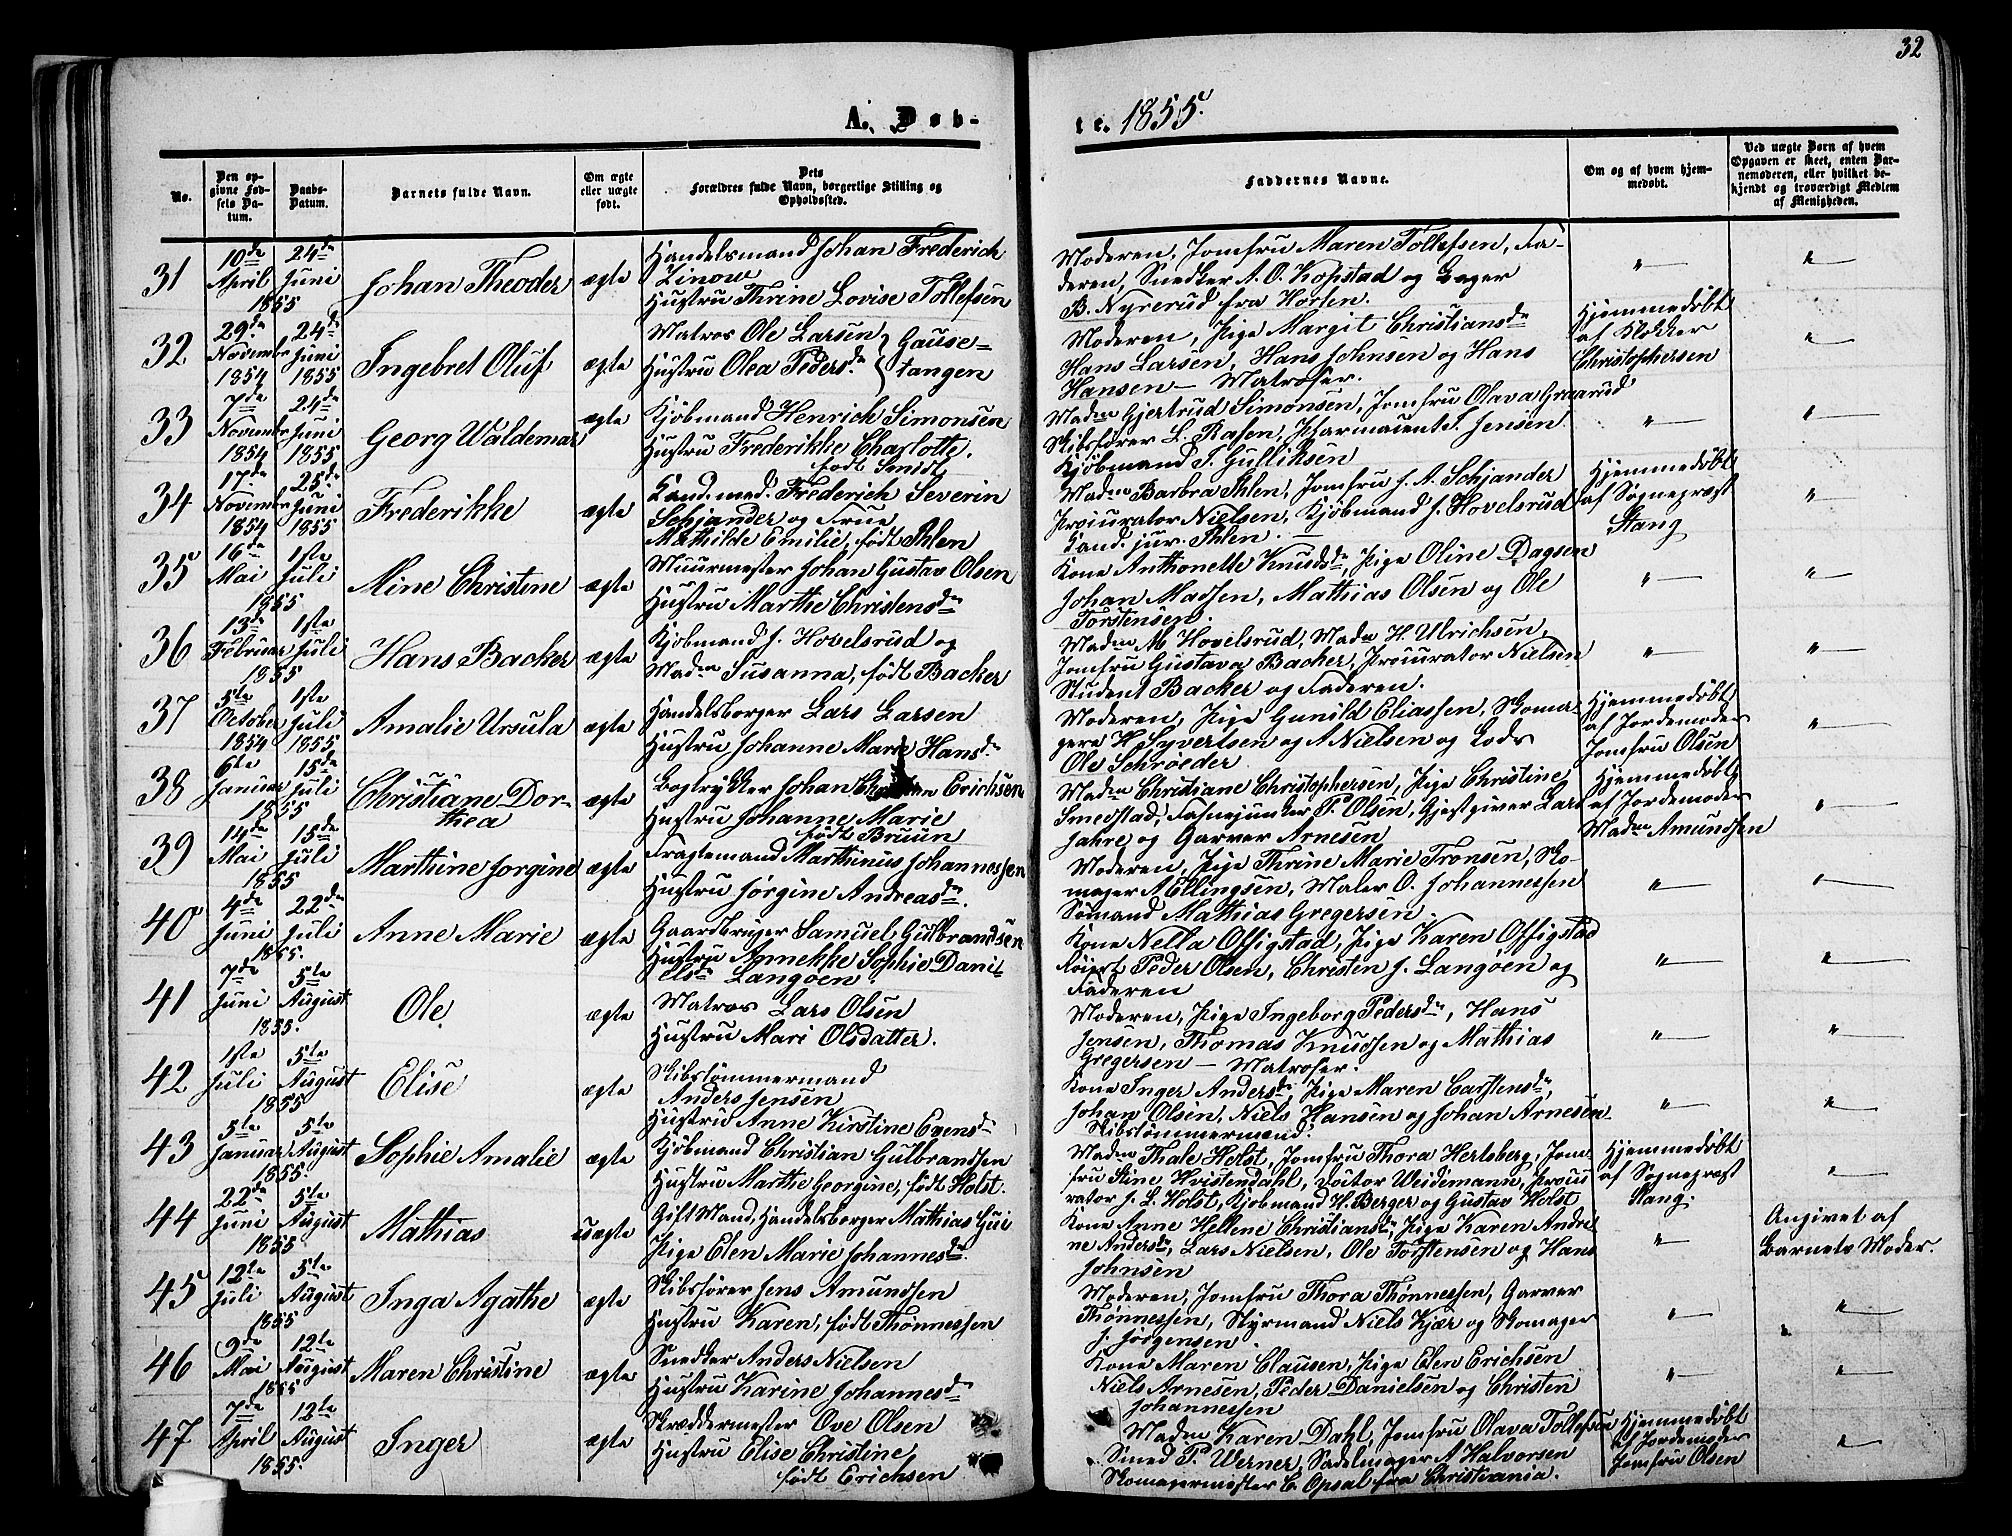 32
A. Døb-
te. 1855.
No.
Den op-
givne Fød-
sels Da-
tum.
Daabs-
Datum.
Barnets fulde Navn.
Om ægte
eller uægte
født.
Dets
Forældres fulde Navn, borgerlige Stilling og
Opholdssted.
Faddernes Navne.
Om og af hvem hjem-
medøbt.
Ved uægte Børn af hvem
Opgaven er skeet, enten Bar-
nemoderen, eller hvilket be-
kjendt og troværdigt Medlem
af Menigheden.
31
10de
April
1855
24de
Juni
Johan Theodor
ægte
Handelsmand Johan Frederich
Linow
Hustru Thrine Lovise Tollefsen
Moderen, Jomfru Maren Tollefsen, Fa-
deren, Snedker A. O. Kopstad og Bager
B. Nyrerud fra Horten.
"
"
32
29de
November
1854
24de
Juni
1855
Ingebret Oluf
ægte
Matros Ole Larsen
Hustru Olea Pedersdr
Gause-
tangen
Moderen, Pige Margit Christiansdr
Hans Larsen, Hans Johnsen og Hans
Hansen — Matroser.
Hjemmedøbt
af Klokker
Christophersen
"
33
7de
November
1854
24de
Juni
1855
Georg Waldemar
ægte
Kjøbmand Henrich Simonsen
Hustru Frederikke Charlotte,
født Smidt
Madm Gjertrud Simonsen, Jomfru Olava Graarud
Skibsfører L. Rasen, Pharmaceut T. Jensen
Kjøbmand T. Gulliksen
"
"
34
17de
November
1854
25de
Juni
1855
Frederikke
ægte
Cand. med. Frederich Severin
Schjander og Frue
Mathilde Emilie, født Ihlen
Madm Barbra Ihlen, Jomfru J. A. Schjander
Procurator Nielsen, Kjøbmand J. Hovelsrud
Cand. jur. Ihlen. —
Hjemmedøbt
af Sognepræst
Stang
"
35
16de
Mai
1855
1ste
Juli
Mine Christine
ægte
Muurmester Johan Gustav Olsen
Hustru Marthe Christensdr
Kone Anthonette Knudsdr, Pige Oline Dagsen
Johan Madsen, Mathias Olsen og Ole
Torstensen.
"
"
36
13de
Februar
1855
1ste
Juli
Hans Backer
ægte
Kjøbmand J. Hovelsrud og
Madm Susanna, født Backer
Madm M. Hovelsrud, Madm H. Ulrichsen,
Jomfru Gustava Backer, Procurator Nielsen
Student Backer og Faderen.
"
"
37
5te
October
1854
1ste
Juli
1855
Amalie Ursula
ægte
Handelsborger Lars Larsen
Hustru Johanne Marie Hansdr
Moderen, Pige Gunild Eliassen, Skoma-
gere H. Syvertsen og A Nielsen og Lods
Ole Schrøeder
Hjemmedøbt
af Jordemoder
Jomfru Olsen
"
38
6te
Januar
1855
15de
Juli
Christiane Dor-
thea
ægte
Bogtrykker Johan Erichsen
Hustru Johanne Marie
født Bruun
Madm Christiane Christophersen, Pige Christine
Smedstad, Fatnejunker P. Olsen, Gjestgiver Lars
Jahre og Garver Arnesen
Hjemmedøbt
af Jordemoder
Madm Amundsen
"
39
14de
Mai
1855
15de
Juli
Marthine Jorgine
ægte
Fragtemand Marthinus Johannessen
Hustru Jørgine Andreasdr.
Moderen, Pige Thrine Marie Tronsen, Sko-
mager A Ellingsen, Maler O. Johannessen
Sømand Mathias Gregersen.
"
"
40
4de
Juni
1855.
22de
Juli
Anne Marie
ægte
Gaardbruger Samuel Gulbrandsen
Hustru Annekke Sophie Dani-
elsdr Langøen.
Kone Nella Offigstad, Pige Karen Offigstad
Føiert Peder Olsen, Christen J. Langøen og
Faderen
"
"
41
7de
Juni
1855.
5te
August
Ole
ægte
Matros Lars Olsen
Hustru Mari Olsdatter.
Moderen, Pige Ingeborg Pedersdr, Hans
Jensen, Thomas Knudsen og Mathias
Gregersen — Matroser.
"
"
42
1ste
Juli
1855
5te
August
Elise
ægte
Skibstømmermand
Anders Jensen
Hustru Anne Kirstine Evensdr
Kone Inger Andersdr, Pige Maren Carstensdr,
Johan Olsen, Niels Hansen og Johan Arnesen
Skibstømmermænd.
"
"
43
5te
Januar
1855.
5te
August
Sophie Amalie
ægte
Kjøbmand Christian Gulbrandsen
Hustru Marthe Georgine, født Holst.
Madm Thale Holst, Jomfru Thora Hertsberg, Jom-
fru Stine Hvistendahl, Doctor Weidemann, Procu
rator J. L. Holst, Kjøbmand H. Berger og Gustav Holst
Hjemmedøbt
af Sognepræst
Stang.
"
44
22de
Juni
1855
5te
August
Mathias
uægte
Gift Mand, Handelsborger Mathias Gui
Pige Elen Marie Johannesdr
Kone Anne Hellene Christiansdr, Pige Karen Andre
ne Andersdr, Lars Nielsen, Ole Torstensen og Hans
Johnsen
"
Angivet af
Barnets Moder.
45
12te
Juli
1855
5te
August
Inga Agathe
ægte
Skibsfører Jens Amundsen
Hustru Karen, født Thønnessen
Moderen, Jomfru Thora Thønnessen, Garver
Thønnessen, Styrmand Niels Kjær og Skomager
J. Jørgensen.
"
"
46
9de
Mai
1855
12te
August
Maren Christine
ægte
Snedker Anders Nielsen
Hustru Karine Johannesdr
Kone Maren Clausen, Pige Elen Erichsen
Niels Arnesen, Peder Danielsen og Christen
Johannessen
"
"
47
7de
April
1855
12te
August
Inger
ægte
Skræddermester Ove Olsen
Hustru Elise Christine,
født Erichsen
Madm Karen Dahl, Jomfru Olava Tollefsen
Smed P. Werner, Sadelmager A Halvorsen
Skomagermester C. Opsal fra Christiania.
Hjemmedøbt
af Jordemoder
Jomfru Olsen
"